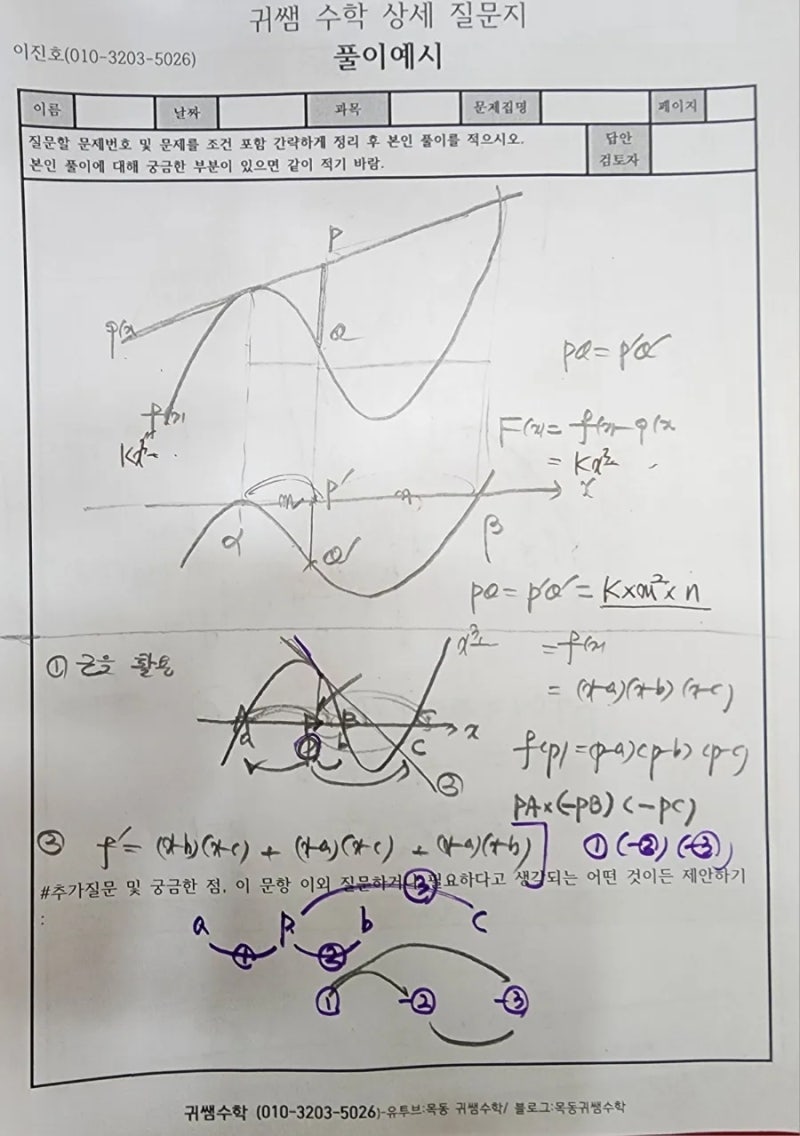 귀쌤 수학 상세 질문지
이진호(010-3203-5026)
풀이예시
이름 날짜 과목 문제집명 페이지
질문할 문제번호 및 문제를 조건 포함 간략하게 정리 후 본인 풀이를 적으시오.
본인 풀이에 대해 궁금한 부분이 있으면 같이 적기 바람.
답안
검토자
P
g(x
Q
PQ = P'Q'
f(x)
Kx³
F(x) = f(x) - g(x
= Kx³
x
P'
m n
α
Q'
β
PQ = P'Q' = K×m²×n
① 근을 활용
x³
= f(x)
= (x-a)(x-b)(x-c)
A P B C x
a b c
③
f(p) = (p-a)(p-b)(p-c)
PA×(-PB)(-PC)
② f' = (x-b)(x-c) + (x-a)(x-c) + (x-a)(x-b)
① (-②) (-③)
#추가질문 및 궁금한 점, 이 문항 이외 질문하거나 필요하다고 생각되는 어떤 것이든 제안하기
:
③
a P b c
① ②
① -② -③
귀쌤수학 (010-3203-5026)-유투브:목동 귀쌤수학/ 블로그:목동귀쌤수학